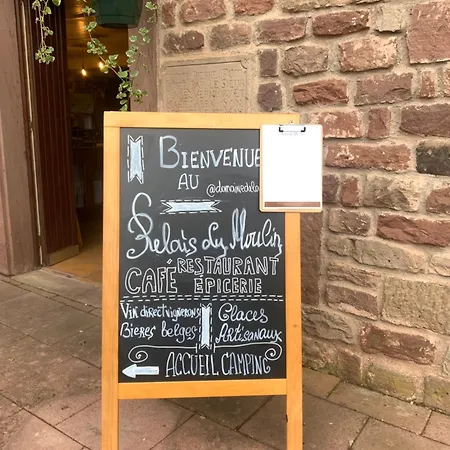 BIENVENUE
AU
Relais du Moulin
RESTAURANT
CAFÉ ÉPICERIE
Vin direct vignerons
Bières belges
Glaces
Artisanaux
ACCUEIL CAMPING